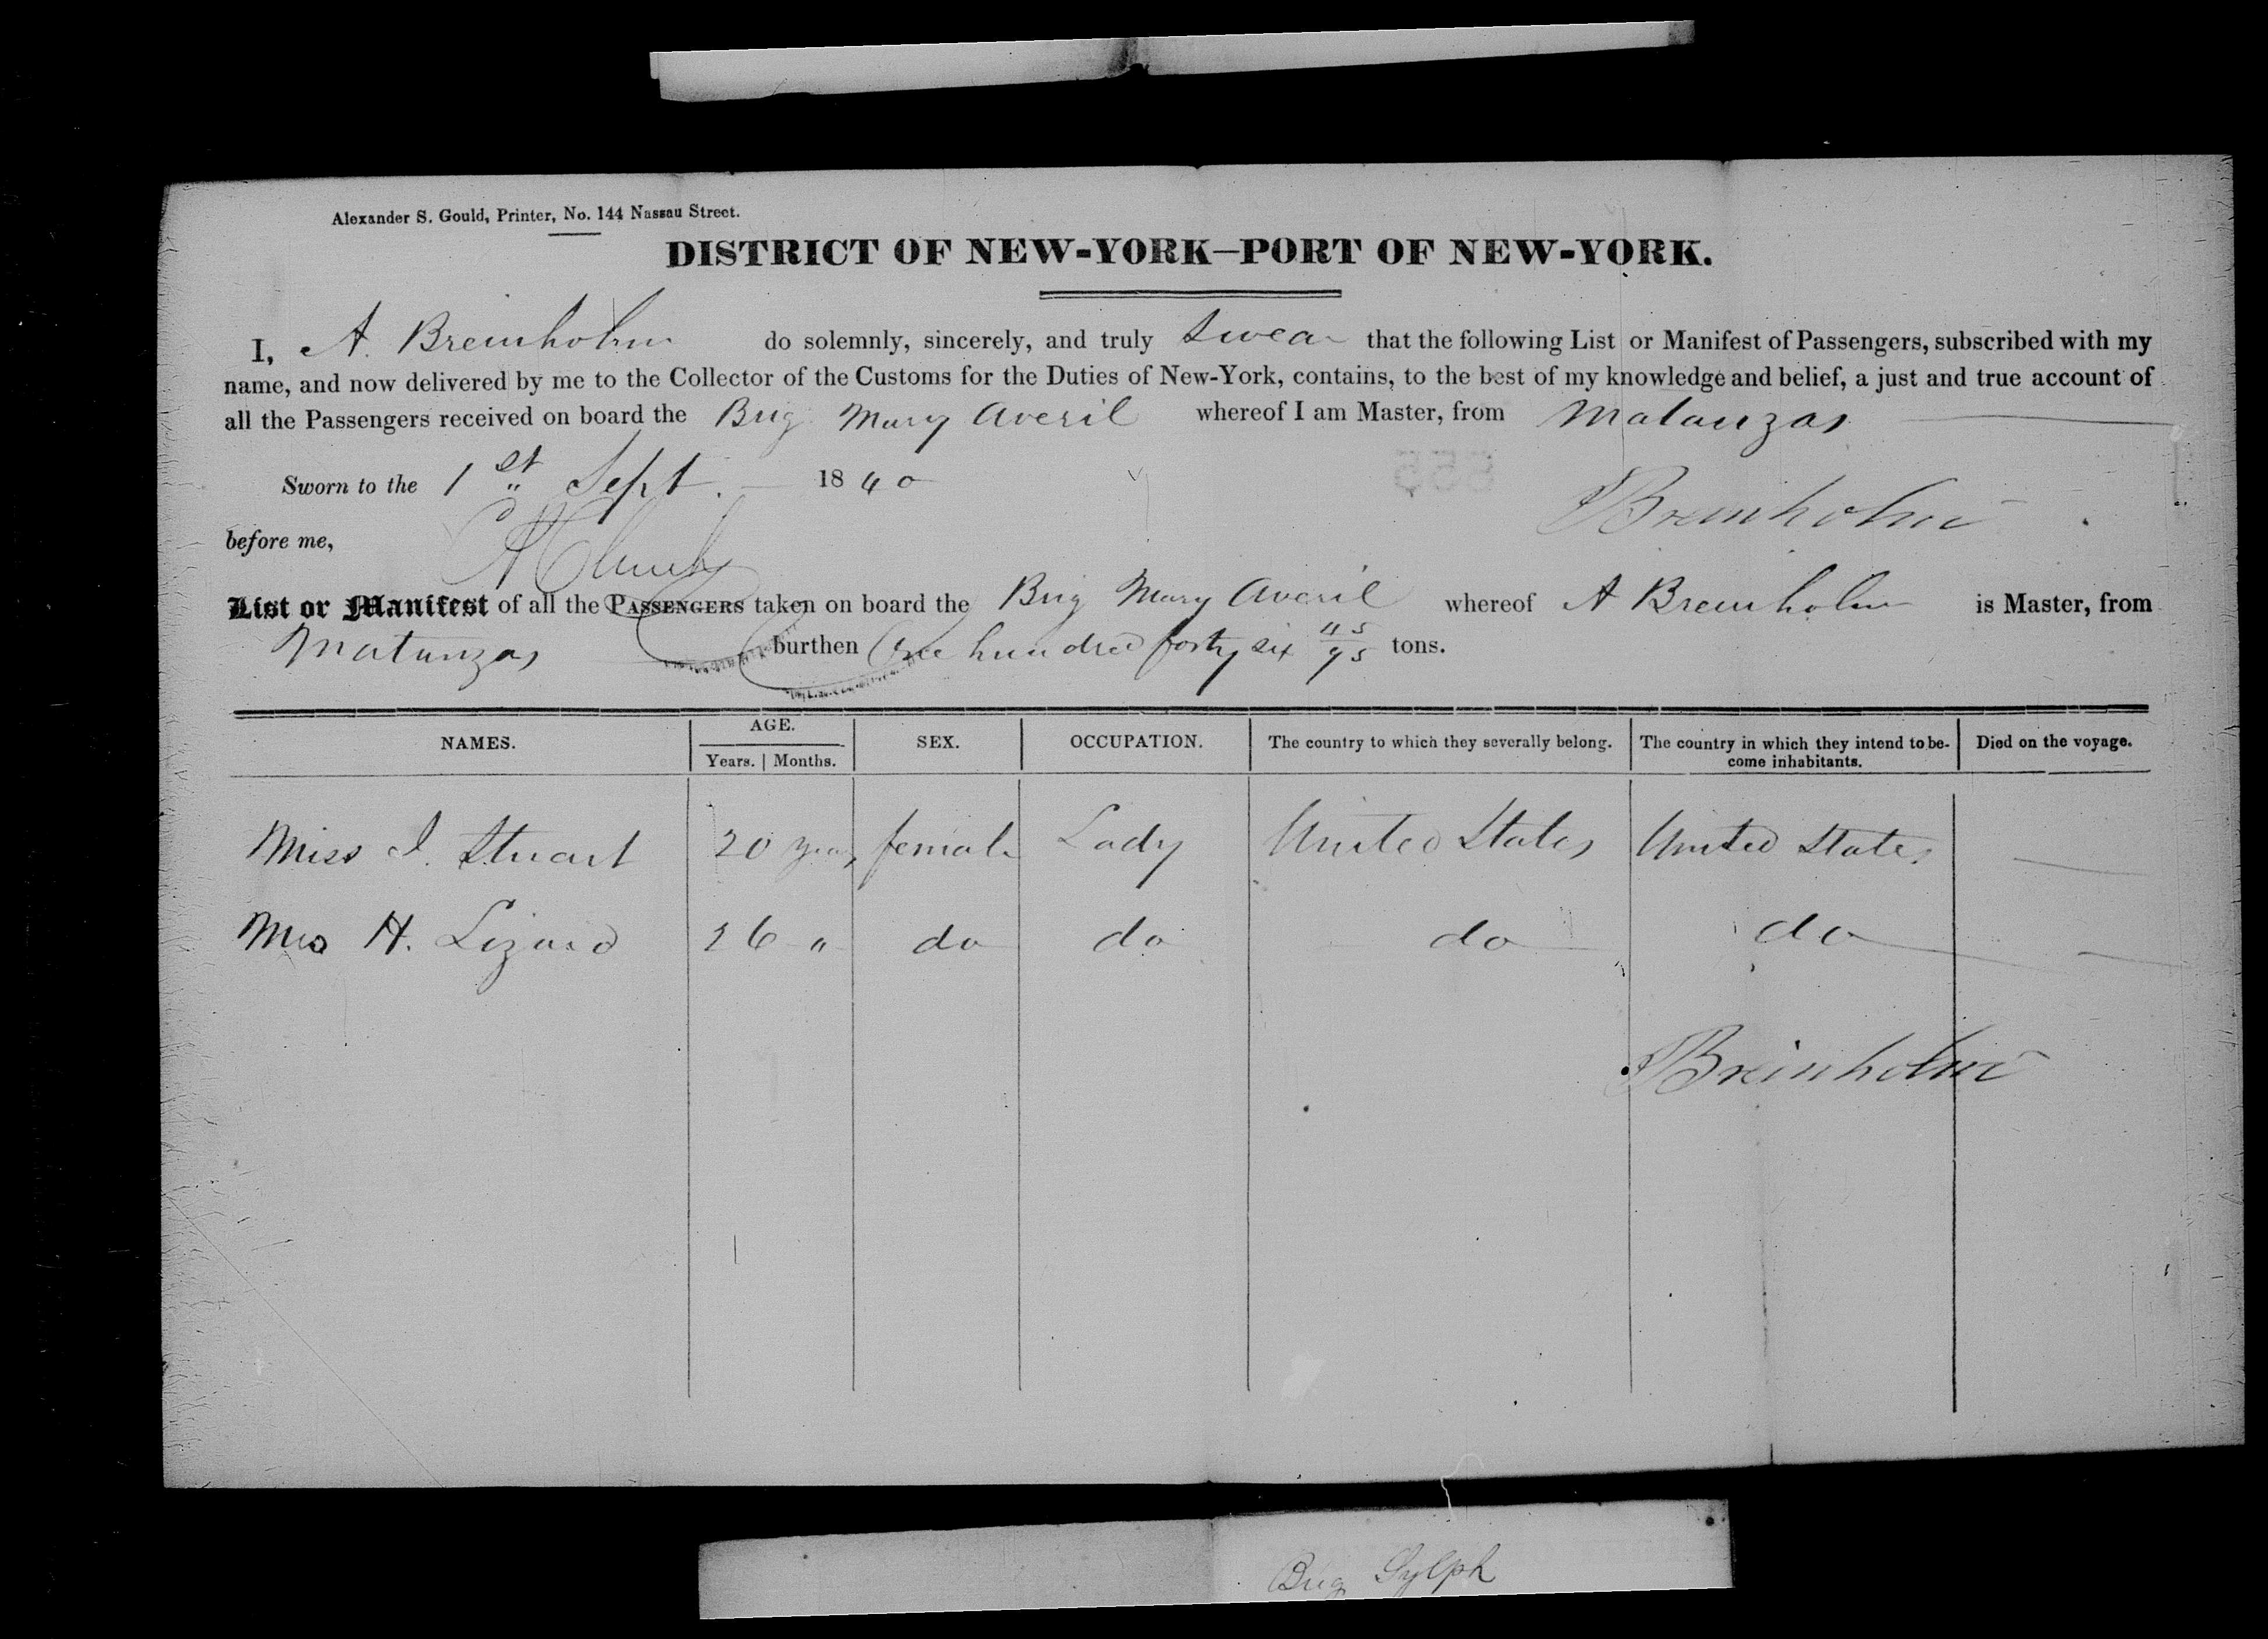 Alexander S. Gould, Printer, No. 144 Nassau Street.
DISTRICT OF NEW-YORK—PORT OF NEW-YORK.
I, A. Breinholm do solemnly, sincerely, and truly swear that the following List or Manifest of Passengers, subscribed with my
name, and now delivered by me to the Collector of the Customs for the Duties of New-York, contains, to the best of my knowledge and belief, a just and true account of
all the Passengers received on board the Brig Mary Averil whereof I am Master, from Matanzas
Sworn to the 1st Sept. 1840
A Breinholm
before me,
List or Manifest of all the PASSENGERS taken on board the Brig Mary Averil whereof A Breinholm is Master, from
Matanzas burthen One hundred forty six 45/95 tons.
NAMES. AGE. SEX. OCCUPATION. The country to which they severally belong. The country in which they intend to be- Died on the voyage.
Years. | Months. come inhabitants.
Miss I. Stuart 20 years female Lady United States United States
Mrs H. Lizard 26 " do do do do
A Breinholm
Brig Sylph